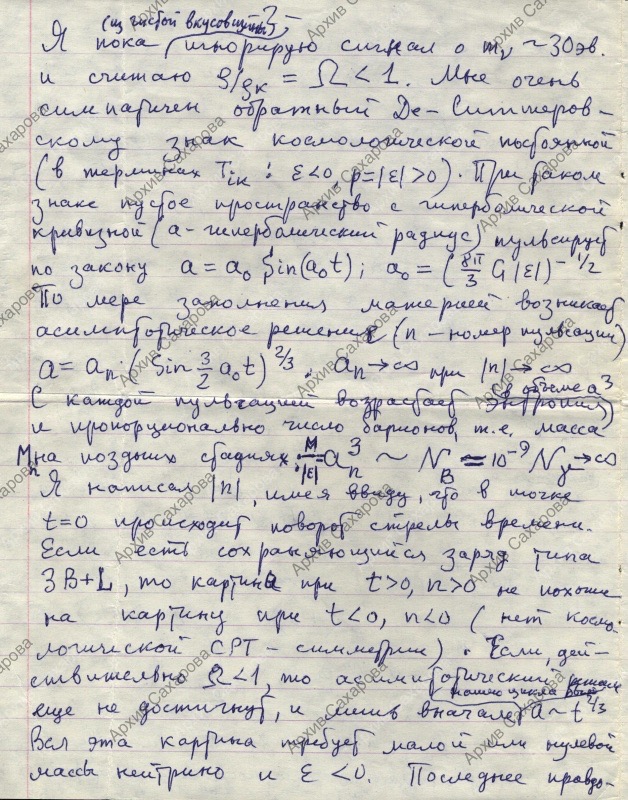 (из чистой вкусовщины?)
Я пока игнорирую сигнал о m_ν ~ 30 эв.
и считаю ρ/ρ_к = Ω < 1. Мне очень
симпатичен обратный Де-Ситтеров-
скому знак космологической постоянной
(в терминах T_ik : ε<0 p=|ε|>0). При таком
знаке пустое пространство с гиперболической
кривизной (a - гиперболический радиус) пульсирует
по закону a = a_0 Sin(a_0 t); a_0 = (8π/3 G|ε|)^-1/2
По мере заполнения материей возникает
асимптотическое решение (n - номер пульсации)
a = a_n · (Sin 3/2 a_0 t)^2/3 . a_n → ∞ при |n| → ∞
С каждой пульсацией возрастает энтропия (в объеме a^3)
и пропорционально число барионов, т.е. масса
M_n на поздних стадиях. M/|ε| = a_n^3 ~ N_B = 10^-9 N_γ → ∞
Я написал |n|, имея ввиду, что в точке
t=0 происходит поворот стрелы времени.
Если есть сохраняющийся заряд типа
3B+L, то картина при t>0, n>0 не похожа
на картину при t<0, n<0 (нет космо-
логической CPT-симметрии). Если, дей-
ствительно Ω<1, то асимптотический режим
еще не достигнут, и лишь вначале нашего цикла был a ~ t^2/3
Вся эта картина требует малой или нулевой
массы нейтрино и ε < 0. Последнее правдо-
Архив Сахарова